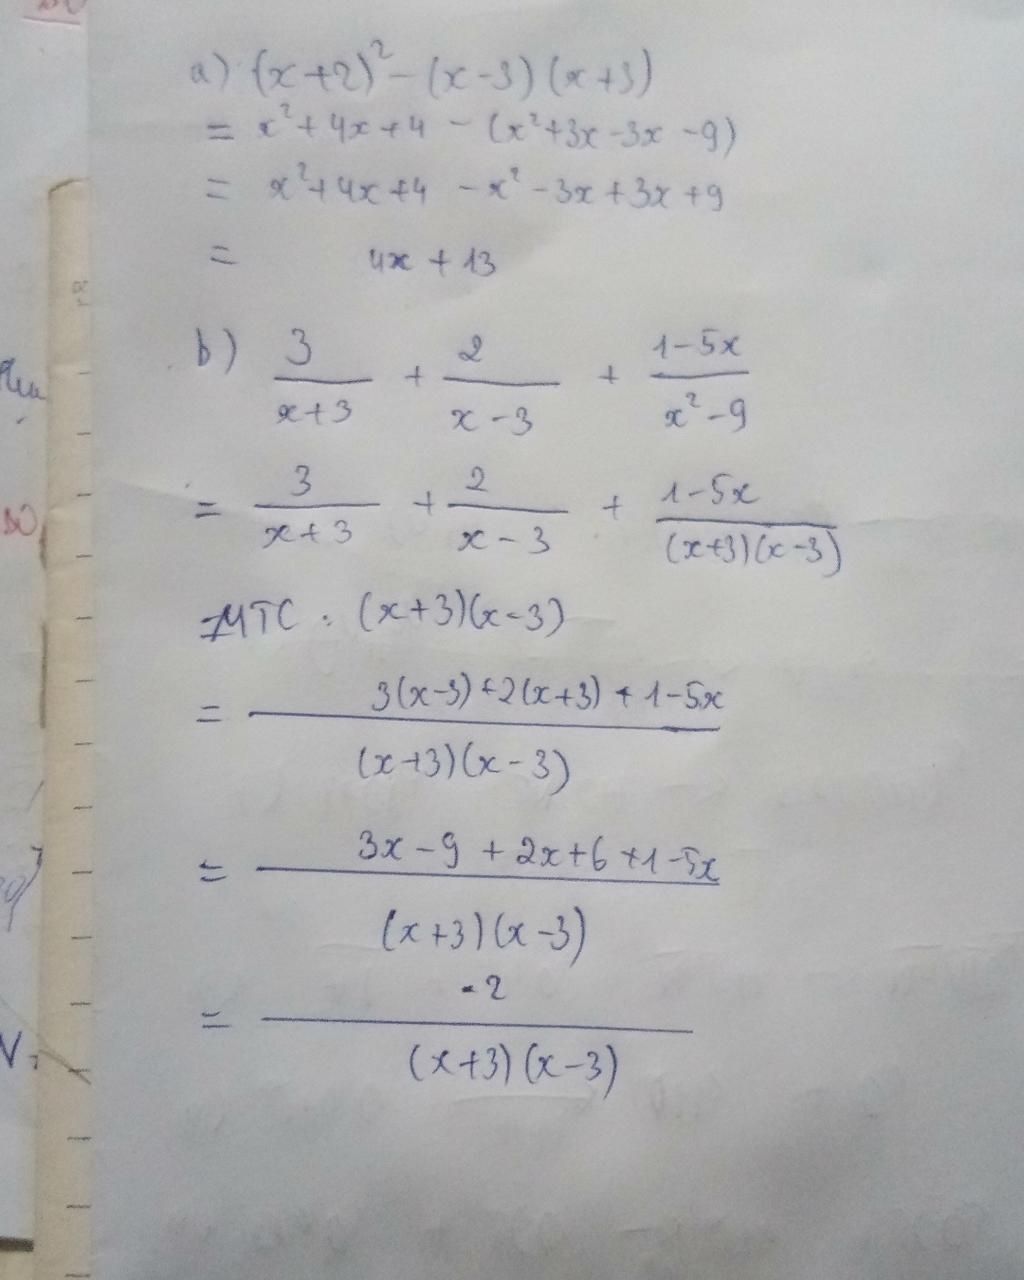 a) (x+2)² - (x-3)(x+3)
= x²+4x+4 - (x²+3x-3x-9)
= x²+4x+4 - x² - 3x+3x+9
= 4x + 13
b) 3/(x+3) + 2/(x-3) + (1-5x)/(x²-9)
= 3/(x+3) + 2/(x-3) + (1-5x)/((x+3)(x-3))
MTC : (x+3)(x-3)
= (3(x-3)+2(x+3)+1-5x)/((x+3)(x-3))
= (3x-9+2x+6+1-5x)/((x+3)(x-3))
= -2/((x+3)(x-3))